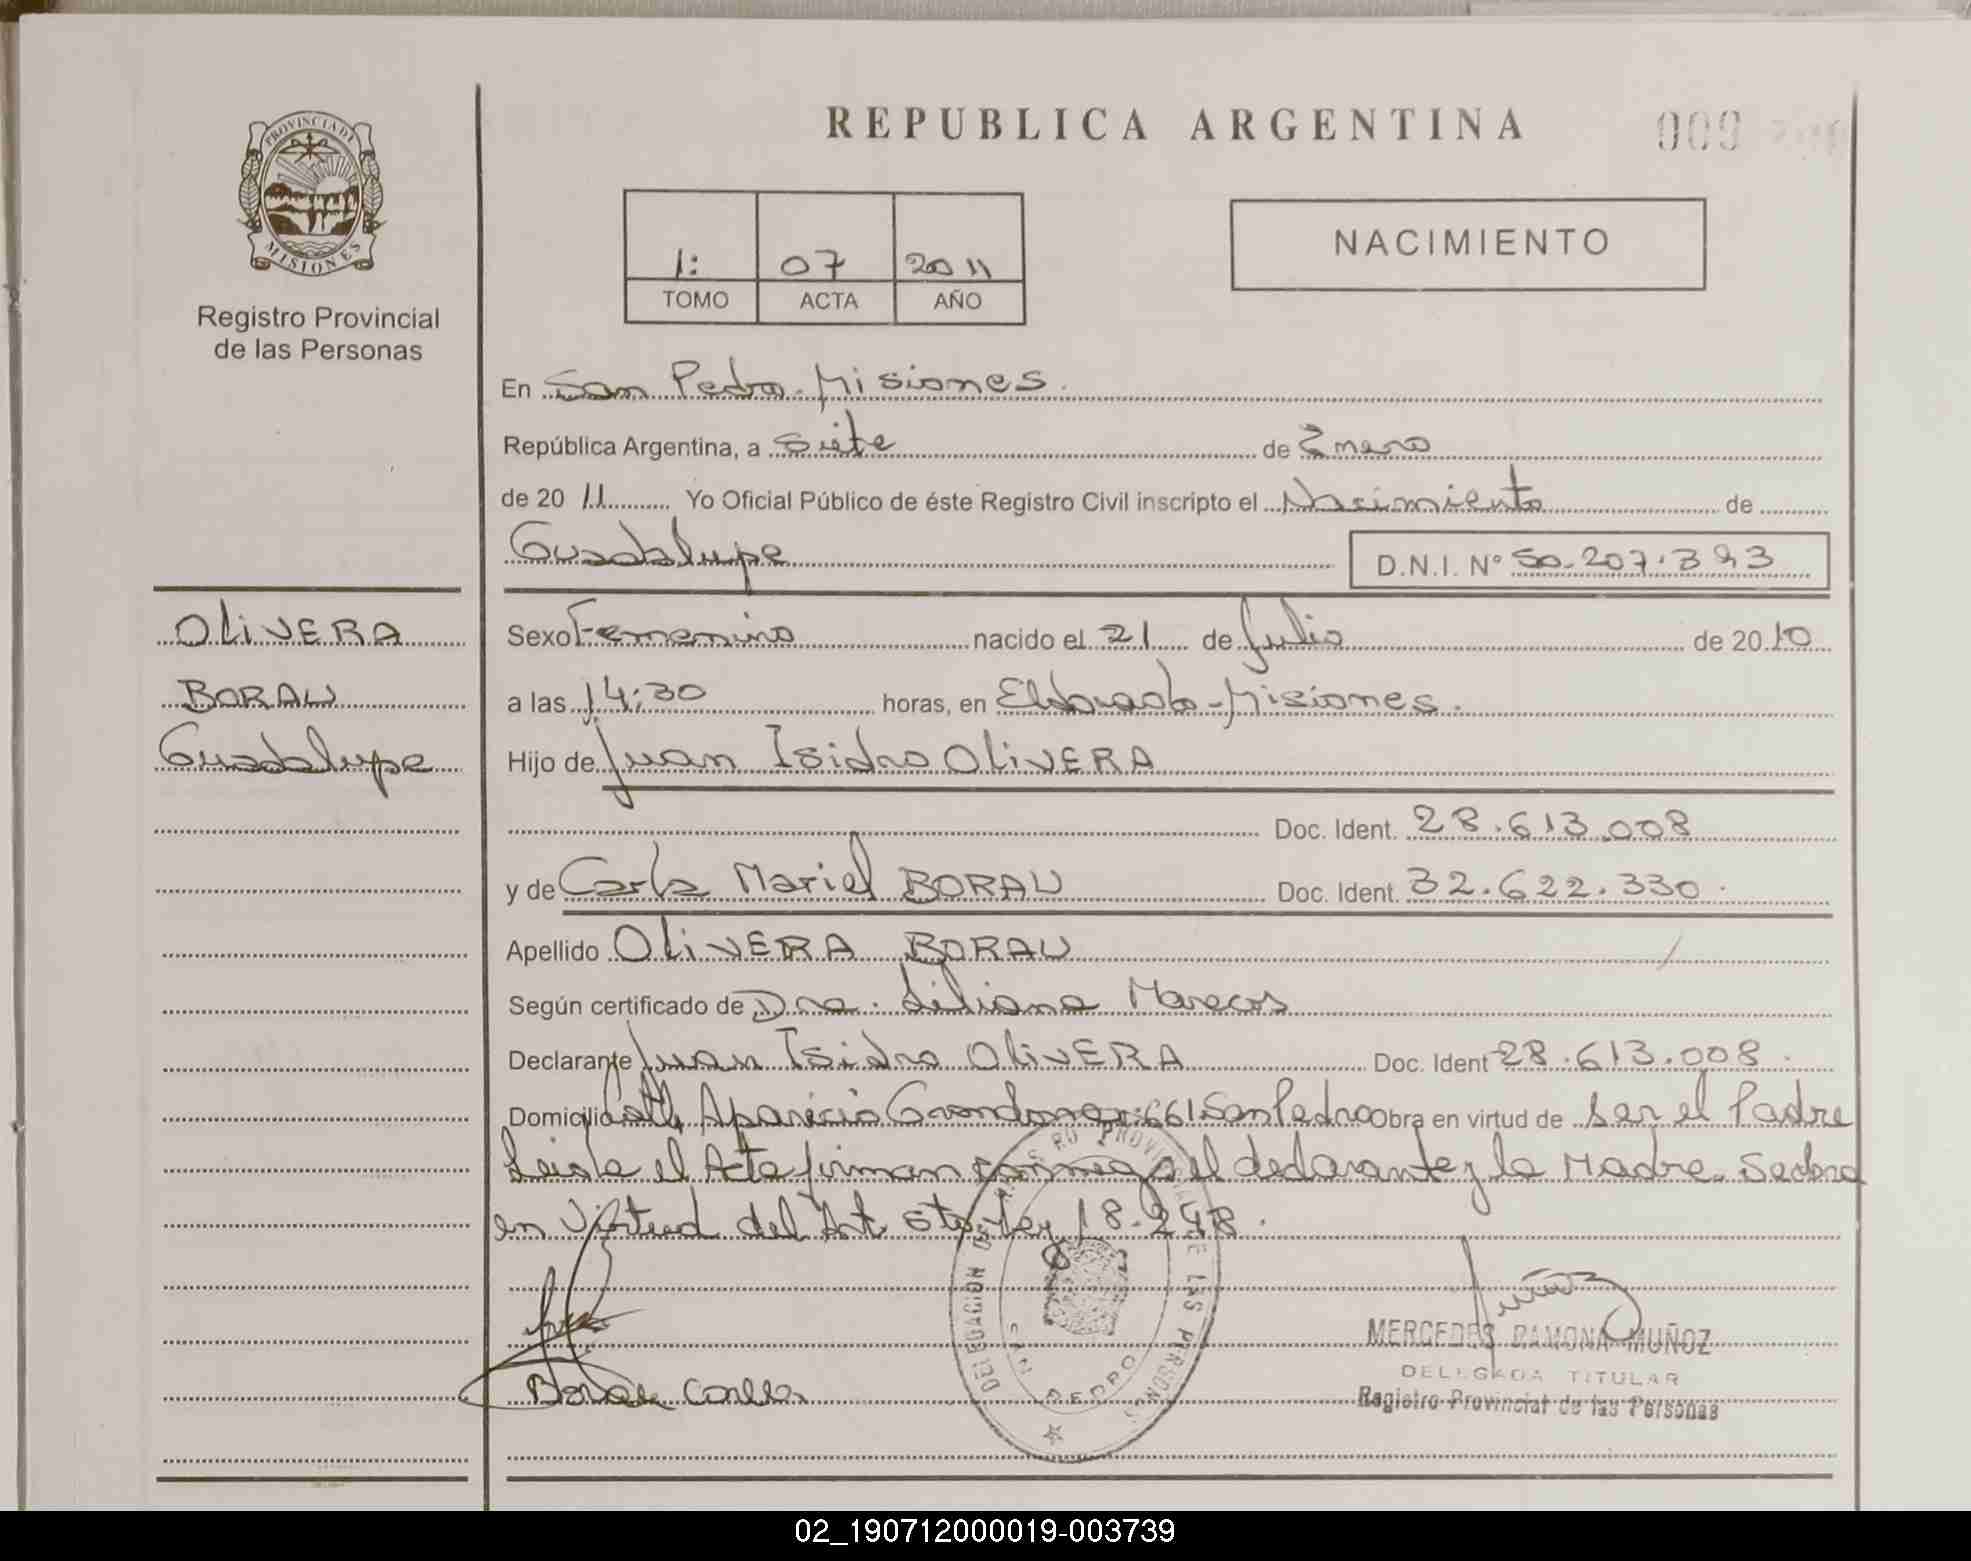 REPUBLICA ARGENTINA
009
PROVINCIA DE
MISIONES
Registro Provincial
de las Personas
1: 07 2011
TOMO ACTA AÑO
NACIMIENTO
En San Pedro-Misiones.
República Argentina, a Siete de Enero
de 20 11 Yo Oficial Público de éste Registro Civil inscripto el Nacimiento de
Guadalupe D.N.I. N° 50.207.393
OLIVERA
BORAU
Guadalupe
Sexo Femenino nacido el 21 de Julio de 2010
a las 14:30 horas, en Eldorado-Misiones.
Hijo de Juan Isidro OLIVERA
Doc. Ident. 28.613.008
y de Carla Mariel BORAU Doc. Ident. 32.622.330.
Apellido OLIVERA BORAU
Según certificado de Dra. Liliana Marcos
Declarante Juan Isidro OLIVERA Doc. Ident 28.613.008.
Domicilio Calle Aparicio 661 San Pedro Obra en virtud de Ser el Padre
Leida el Acta firman conmigo el declarante y la Madre.
en Virtud del Art. 5to Ley 18.248.
Borau Carla
DELEGACION DE REGISTRO PROVINCIAL DE LAS PERSONAS
SAN PEDRO
Muñoz
MERCEDES RAMONA MUÑOZ
DELEGADA TITULAR
Registro Provincial de las Personas
02_190712000019-003739